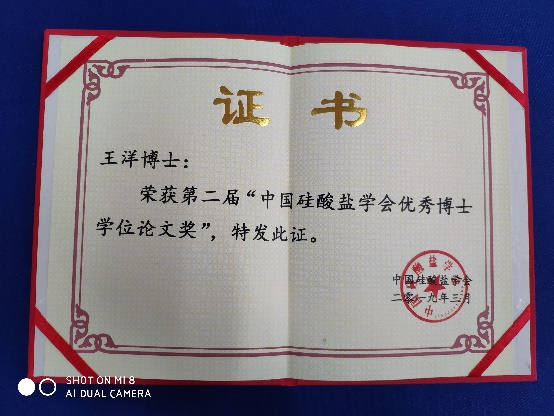 证书
王洋博士：
荣获第二届“中国硅酸盐学会优秀博士
学位论文奖”，特发此证。
中国硅酸盐学会
二零一九年三月
SHOT ON MI 8
AI DUAL CAMERA